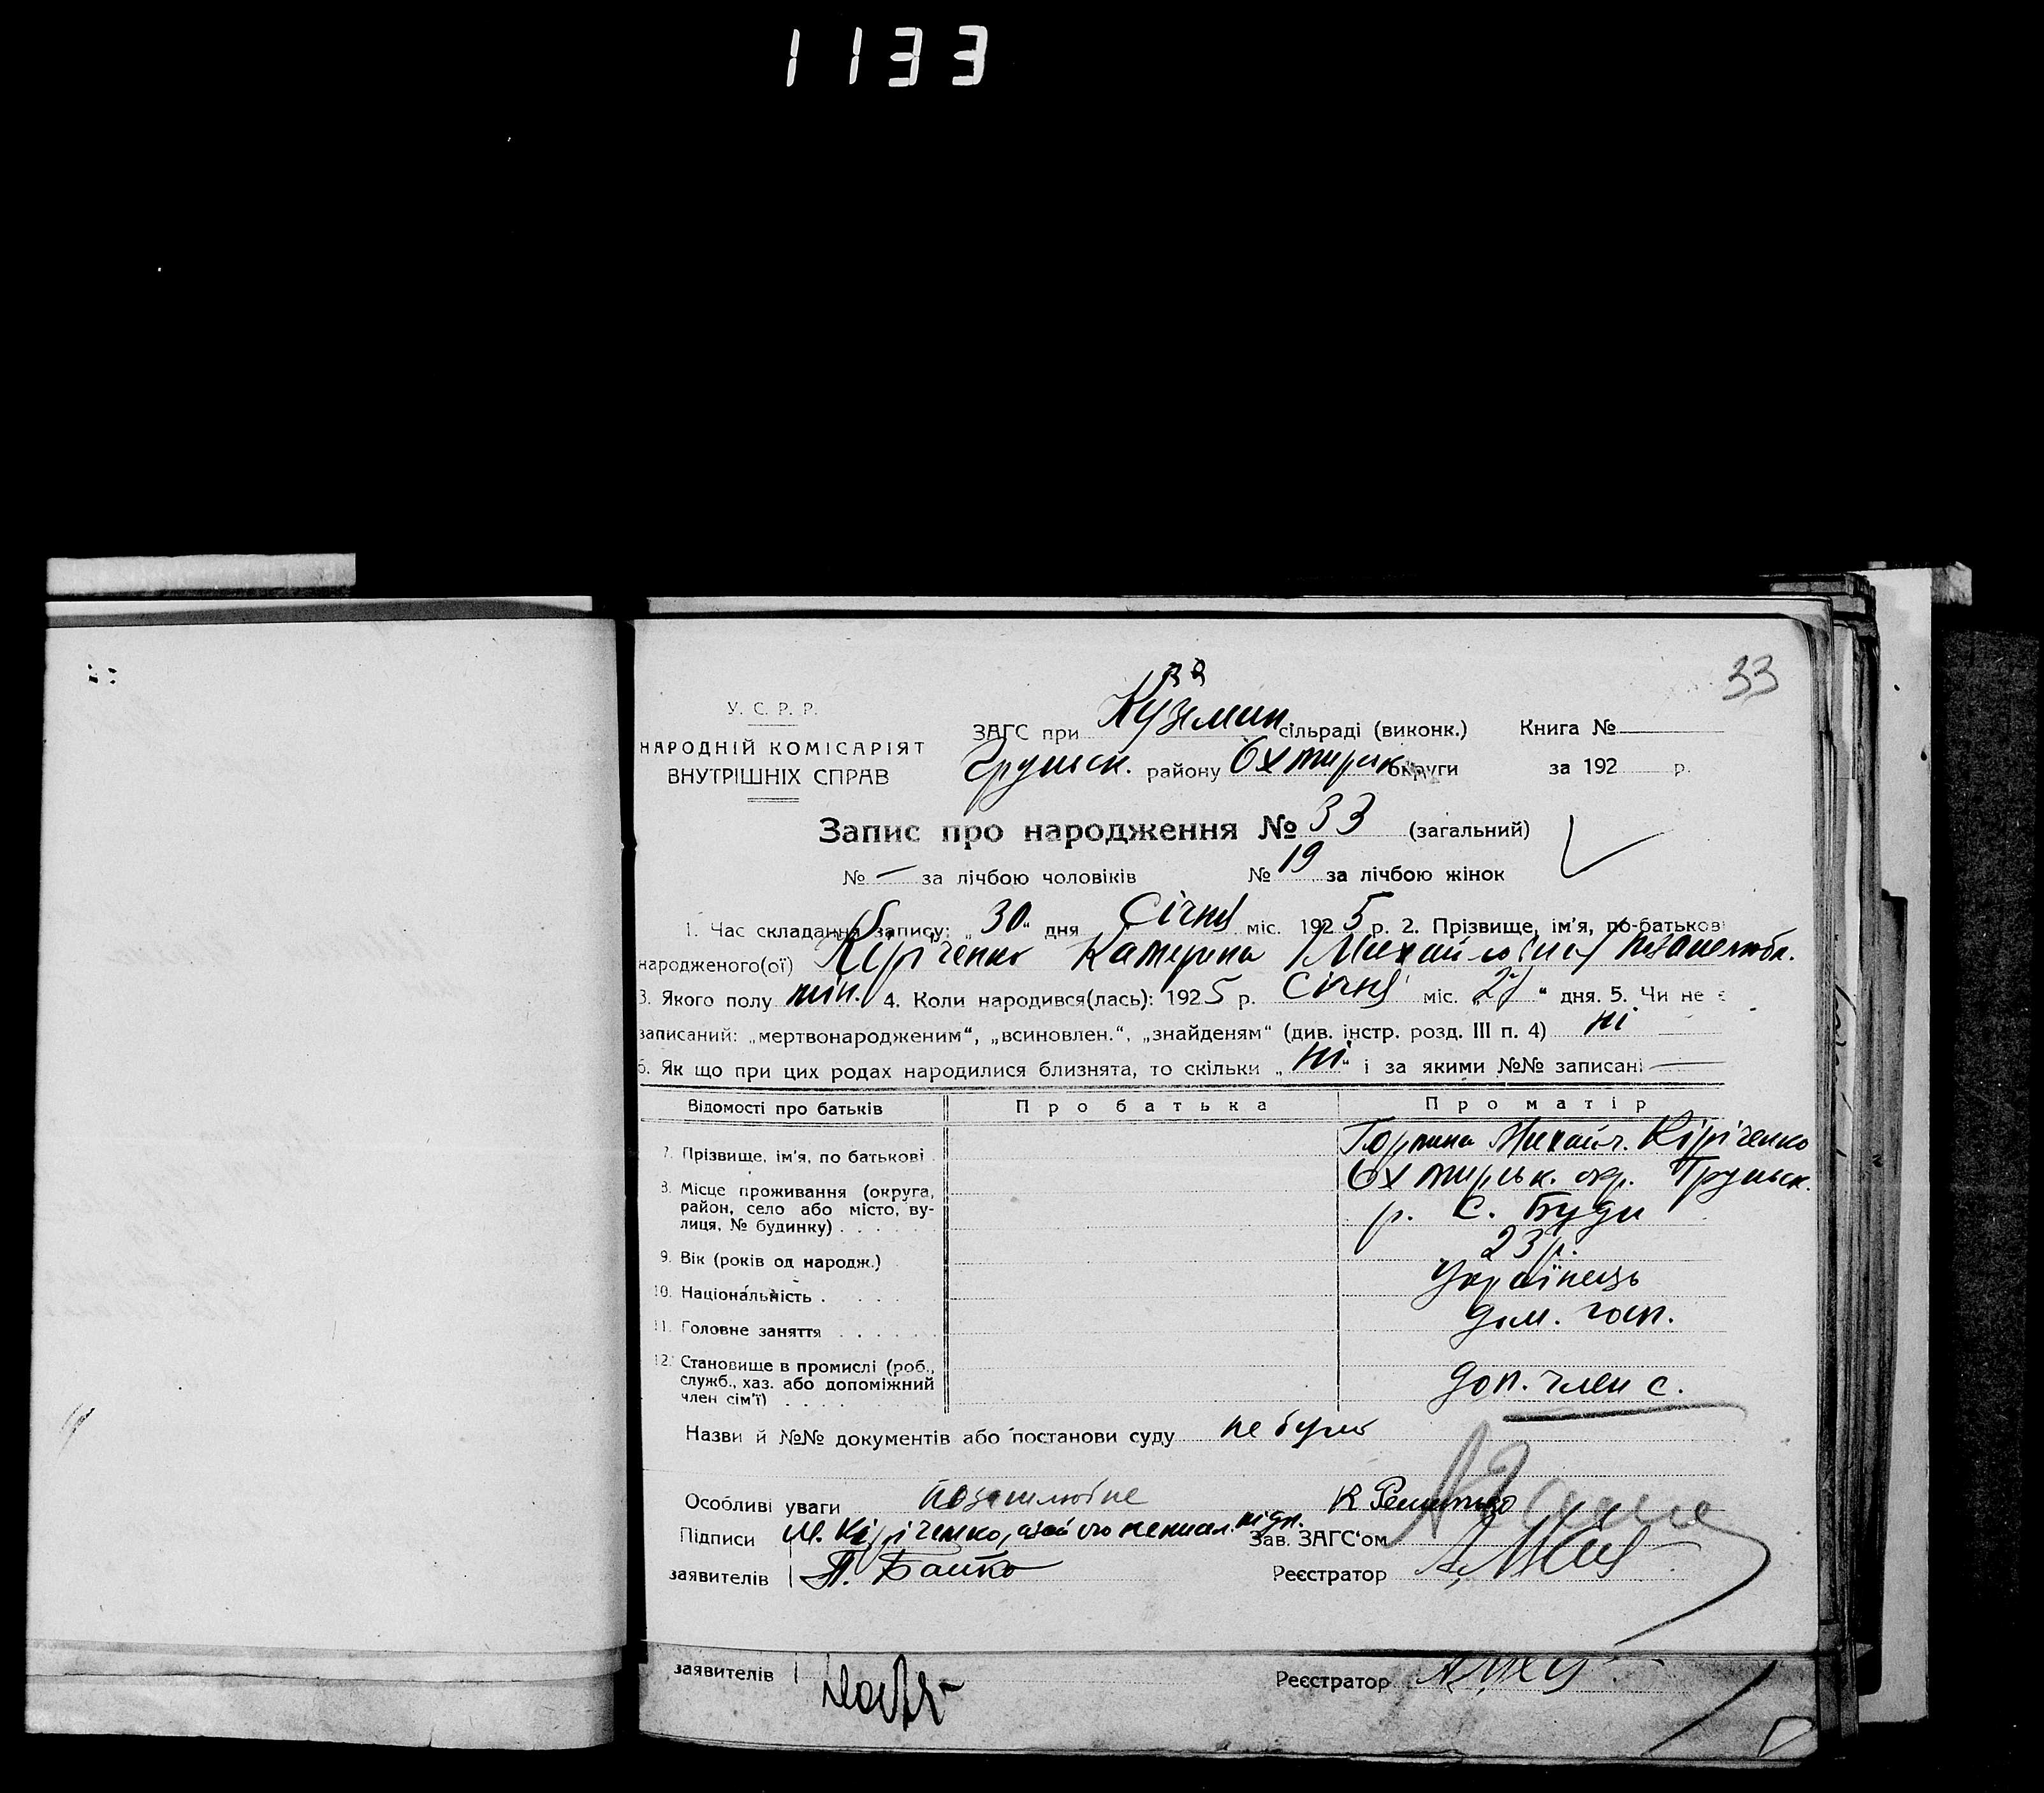 1133
33
У. С. Р. Р.
НАРОДНІЙ КОМІСАРІЯТ
ВНУТРІШНІХ СПРАВ
ЗАГС при Куземин. сільраді (виконк.) Книга №
Грунськ. району Охтирськ. округи за 192 р.
Запис про народження № 33 (загальний)
№ — за лічбою чоловіків № 19 за лічбою жінок
1. Час складання запису: „30“ дня Січня міс. 1925 р. 2. Прізвище, ім'я, по-батькові
народженого(ої) Кіріченко Катерина Михайлівна позашлюбн.
3. Якого полу жін. 4. Коли народився(лась): 1925 р. Січня міс. „27“ дня. 5. Чи не є
записаний: „мертвонародженим“, „всиновлен.“, „знайденям“ (див. інстр. розд. III п. 4) ні
6. Як що при цих родах народилися близнята, то скільки „ні“ і за якими №№ записані —
Відомості про батьків Про батька Про матір
7. Прізвище, ім'я, по батькові Горпина Михайл. Кіріченко
8. Місце проживання (округа, район, село або місто, вулиця, № будинку) Охтирськ. окр. Грунськ.
р. С. Буди
9. Вік (років од народж.) 23 р.
10. Національність Українець
11. Головне заняття дом. госп.
12. Становище в промислі (роб., служб., хаз. або допоміжний член сім'ї) доп. член с.
Назви й №№ документів або постанови суду не було
Особливі уваги позашлюбне
Підписи М. Кіріченко, Зав. ЗАГС'ом
заявителів П. Бойко Реєстратор
заявителів Реєстратор